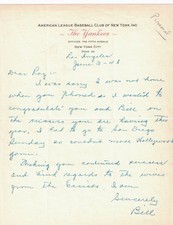 AMERICAN LEAGUE BASEBALL CLUB OF NEW YORK, INC.
The Yankees
OFFICES, 745 FIFTH AVENUE
NEW YORK CITY
Los Angeles
June
Dear Ray:-
I was sorry I was not home
when you phoned as I wanted to
congratulate you and Bill on
the success you are having this
year. I had to go to San Diego
Sunday as
Wishing you continued success
and kind regards to the
from the I am
Sincerely
Bill